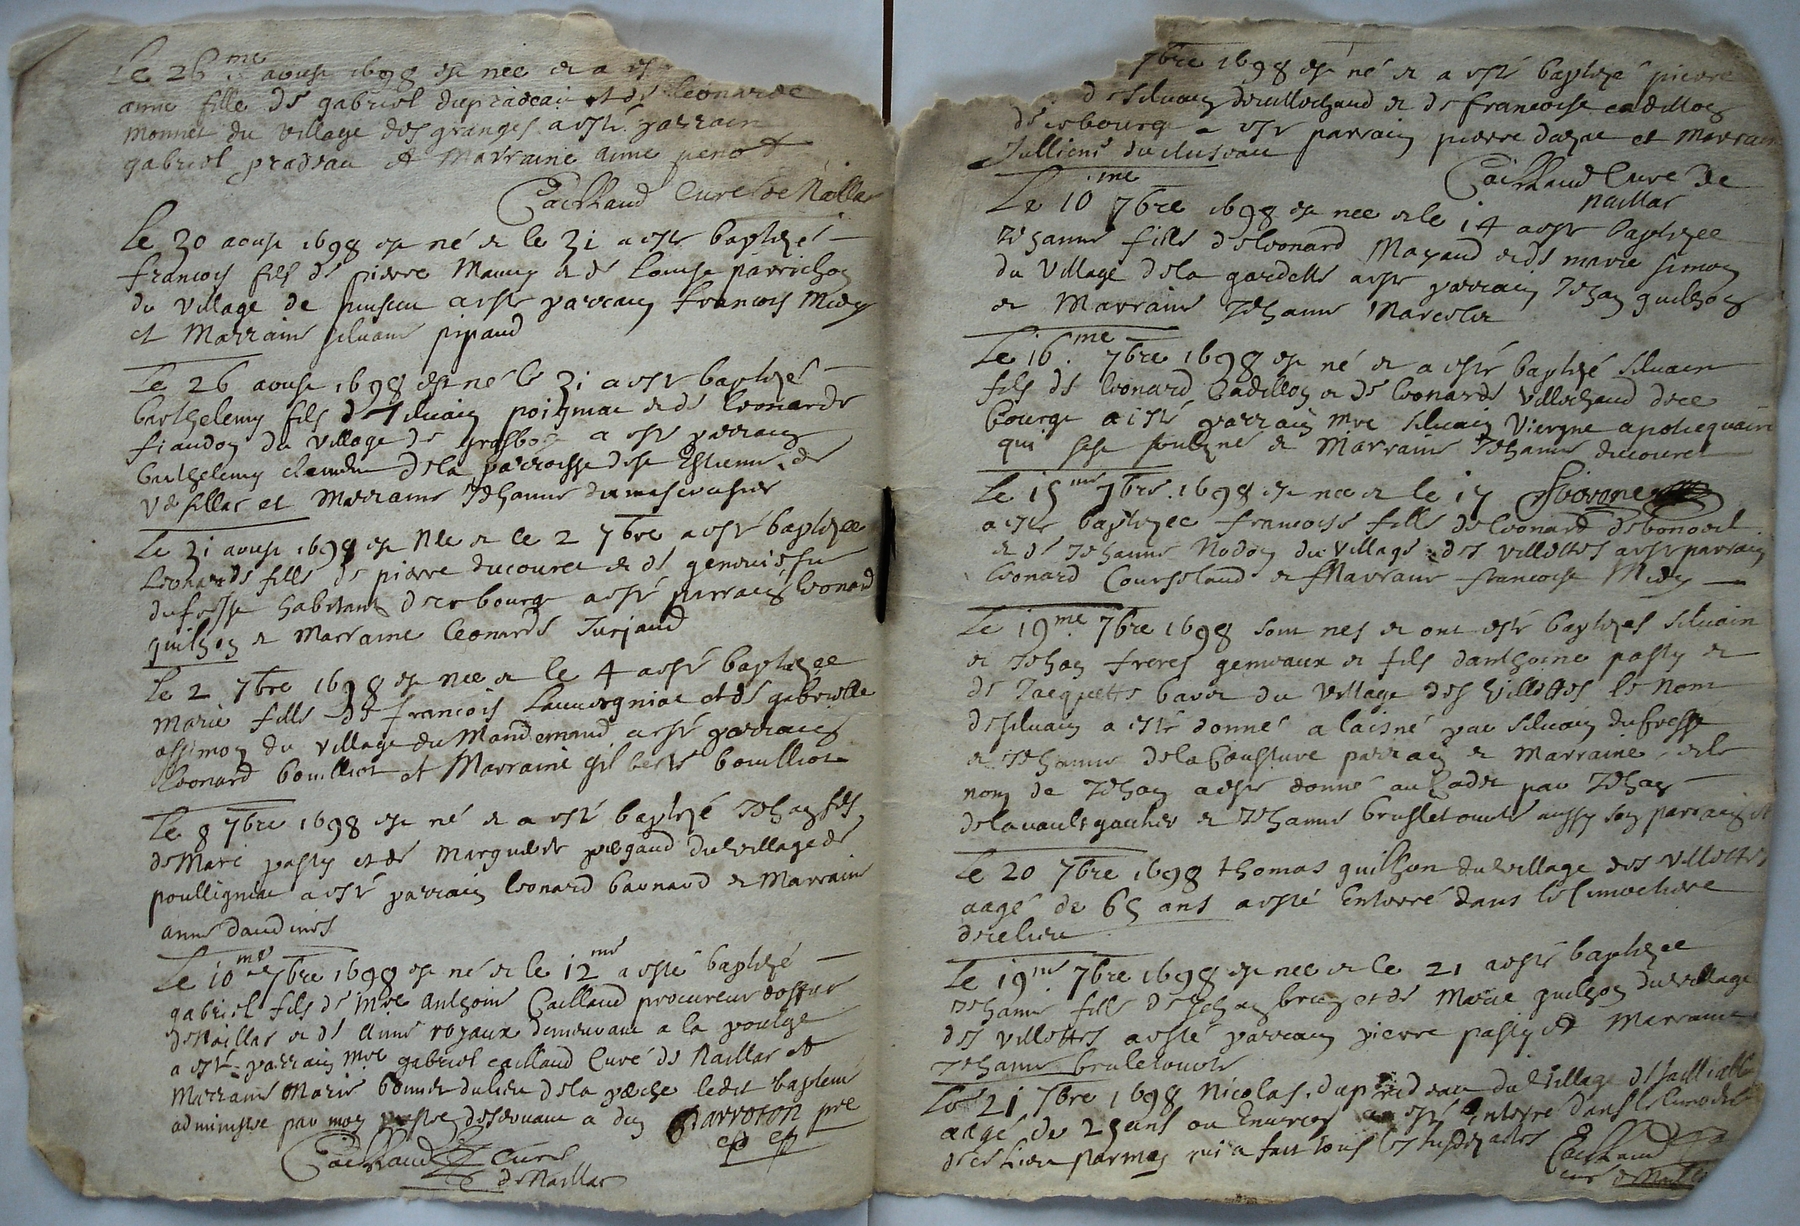 Le 26me aoust 1698 est nee et a est
anne fille de gabriel dupradeau et de leonarde
monnet du village des granges a esté parrain
gabriel pradeau et marraine anne penot
Cailhaud Curé de Naillac
Le 30 aoust 1698 est né et le 31 a esté baptizé
francois fils de pierre Maury et de Louise parrichon
du village de a esté parrain francois Midy
et Marraine silvaine pipaud
Le 26 aoust 1698 est né le 31 a esté baptizé
barthelemy fils de silvain poizniac et de leonarde
fiaudon du village de a esté parrain
barthelemy de la parroisse de st Estienne de
Versillac et Marraine Jehanne
Le 31 aoust 1698 est Née et le 2 7bre a esté baptizee
leonarde fille de pierre ducouret et de geneviefve
dufresse habitans de ce bourg a esté parrain leonard
guilhon et marraine leonarde Jurjaud
Le 2 7bre 1698 est nee et le 4 a esté baptizee
marie fille de francois Lauvergniac et de gabrielle
assimon du village du Mondernaud a esté parrain
leonard bouilliot et Marraine gilberte bouilliot
Le 8 7bre 1698 est né et a esté baptizé Jehan fils
de Marc pasty et de Marguerite piegaud du village de
poullignac a esté parrain leonard baonaud et Marraine
anne daudines
Le 10me 7bre 1698 est né et le 12me a esté baptizé
gabriel fils de mre anthoine Cailhaud procureur doffice
de Naillac et de anne royaux demeurant a la
a esté parrain mre gabriel cailhaud Curé de Naillac et
marraine Marie du lieu de la ledit baptesme
administré par moy prestre desservant a dun Barroton pre
Cailhaud Curé
de Naillac
7bre 1698 est né et a esté baptizé pierre
de silvain devillechaud et de francoise cadillon
de ce bourg a esté parrain pierre et Marraine
Jullienne
Cailhaud Curé de
Naillac
Le 10me 7bre 1698 est nee et le 14 a esté baptizee
Jehanne fille de leonard Mayaud et de marie simon
du village de la gardette a esté parrain Jehan guilhon
et Marraine Jehanne Marcelot
Le 16me 7bre 1698 est né et a esté baptizé silvain
fils de leonard Cadillon et de leonarde villechaud de ce
bourg a esté parrain mre silvain Viergne apoticquaire
qui sest soubzné et Marraine Jehanne ducouret
Le 15me 7bre 1698 est nee et le 17
a esté baptizee francoise fille de leonard debonoeil
et de Jehanne Nodon du village des villettes a esté parrain
leonard Courseland et Marraine francoise Midy
Le 19me 7bre 1698 sont nés et ont esté baptizes silvain
et Jehan freres gemeaux et fils danthoine pasty et
de Jacquette bavet du village des villettes le nom
de silvain a esté donné a laisné par silvain dufresse
et Jehanne de la Cousture parrain et marraine et le
nom de Jehan a esté donné au Cadet par Jehan
delavault gautier et Jehanne brusletoute aussy son parrain et
Le 20 7bre 1698 thomas guilhon du village des villettes
aagé de 65 ans a esté Enterré dans le Cimetiere
de ce lieu
Le 19me 7bre 1698 est nee et le 21 a esté baptizee
Jehanne fille de Jehan brun et de Marie guilhon du village
des villettes a esté parrain pierre pasty et Marraine
Jehanne brulletoute
Le 21 7bre 1698 Nicolas dupradeau du village de
aagé de 25 ans ou Environ a esté Enterré dans le Cimetiere
de ce lieu par moy qui a fait tous les susdits actes Cailhaud
curé de Naillac